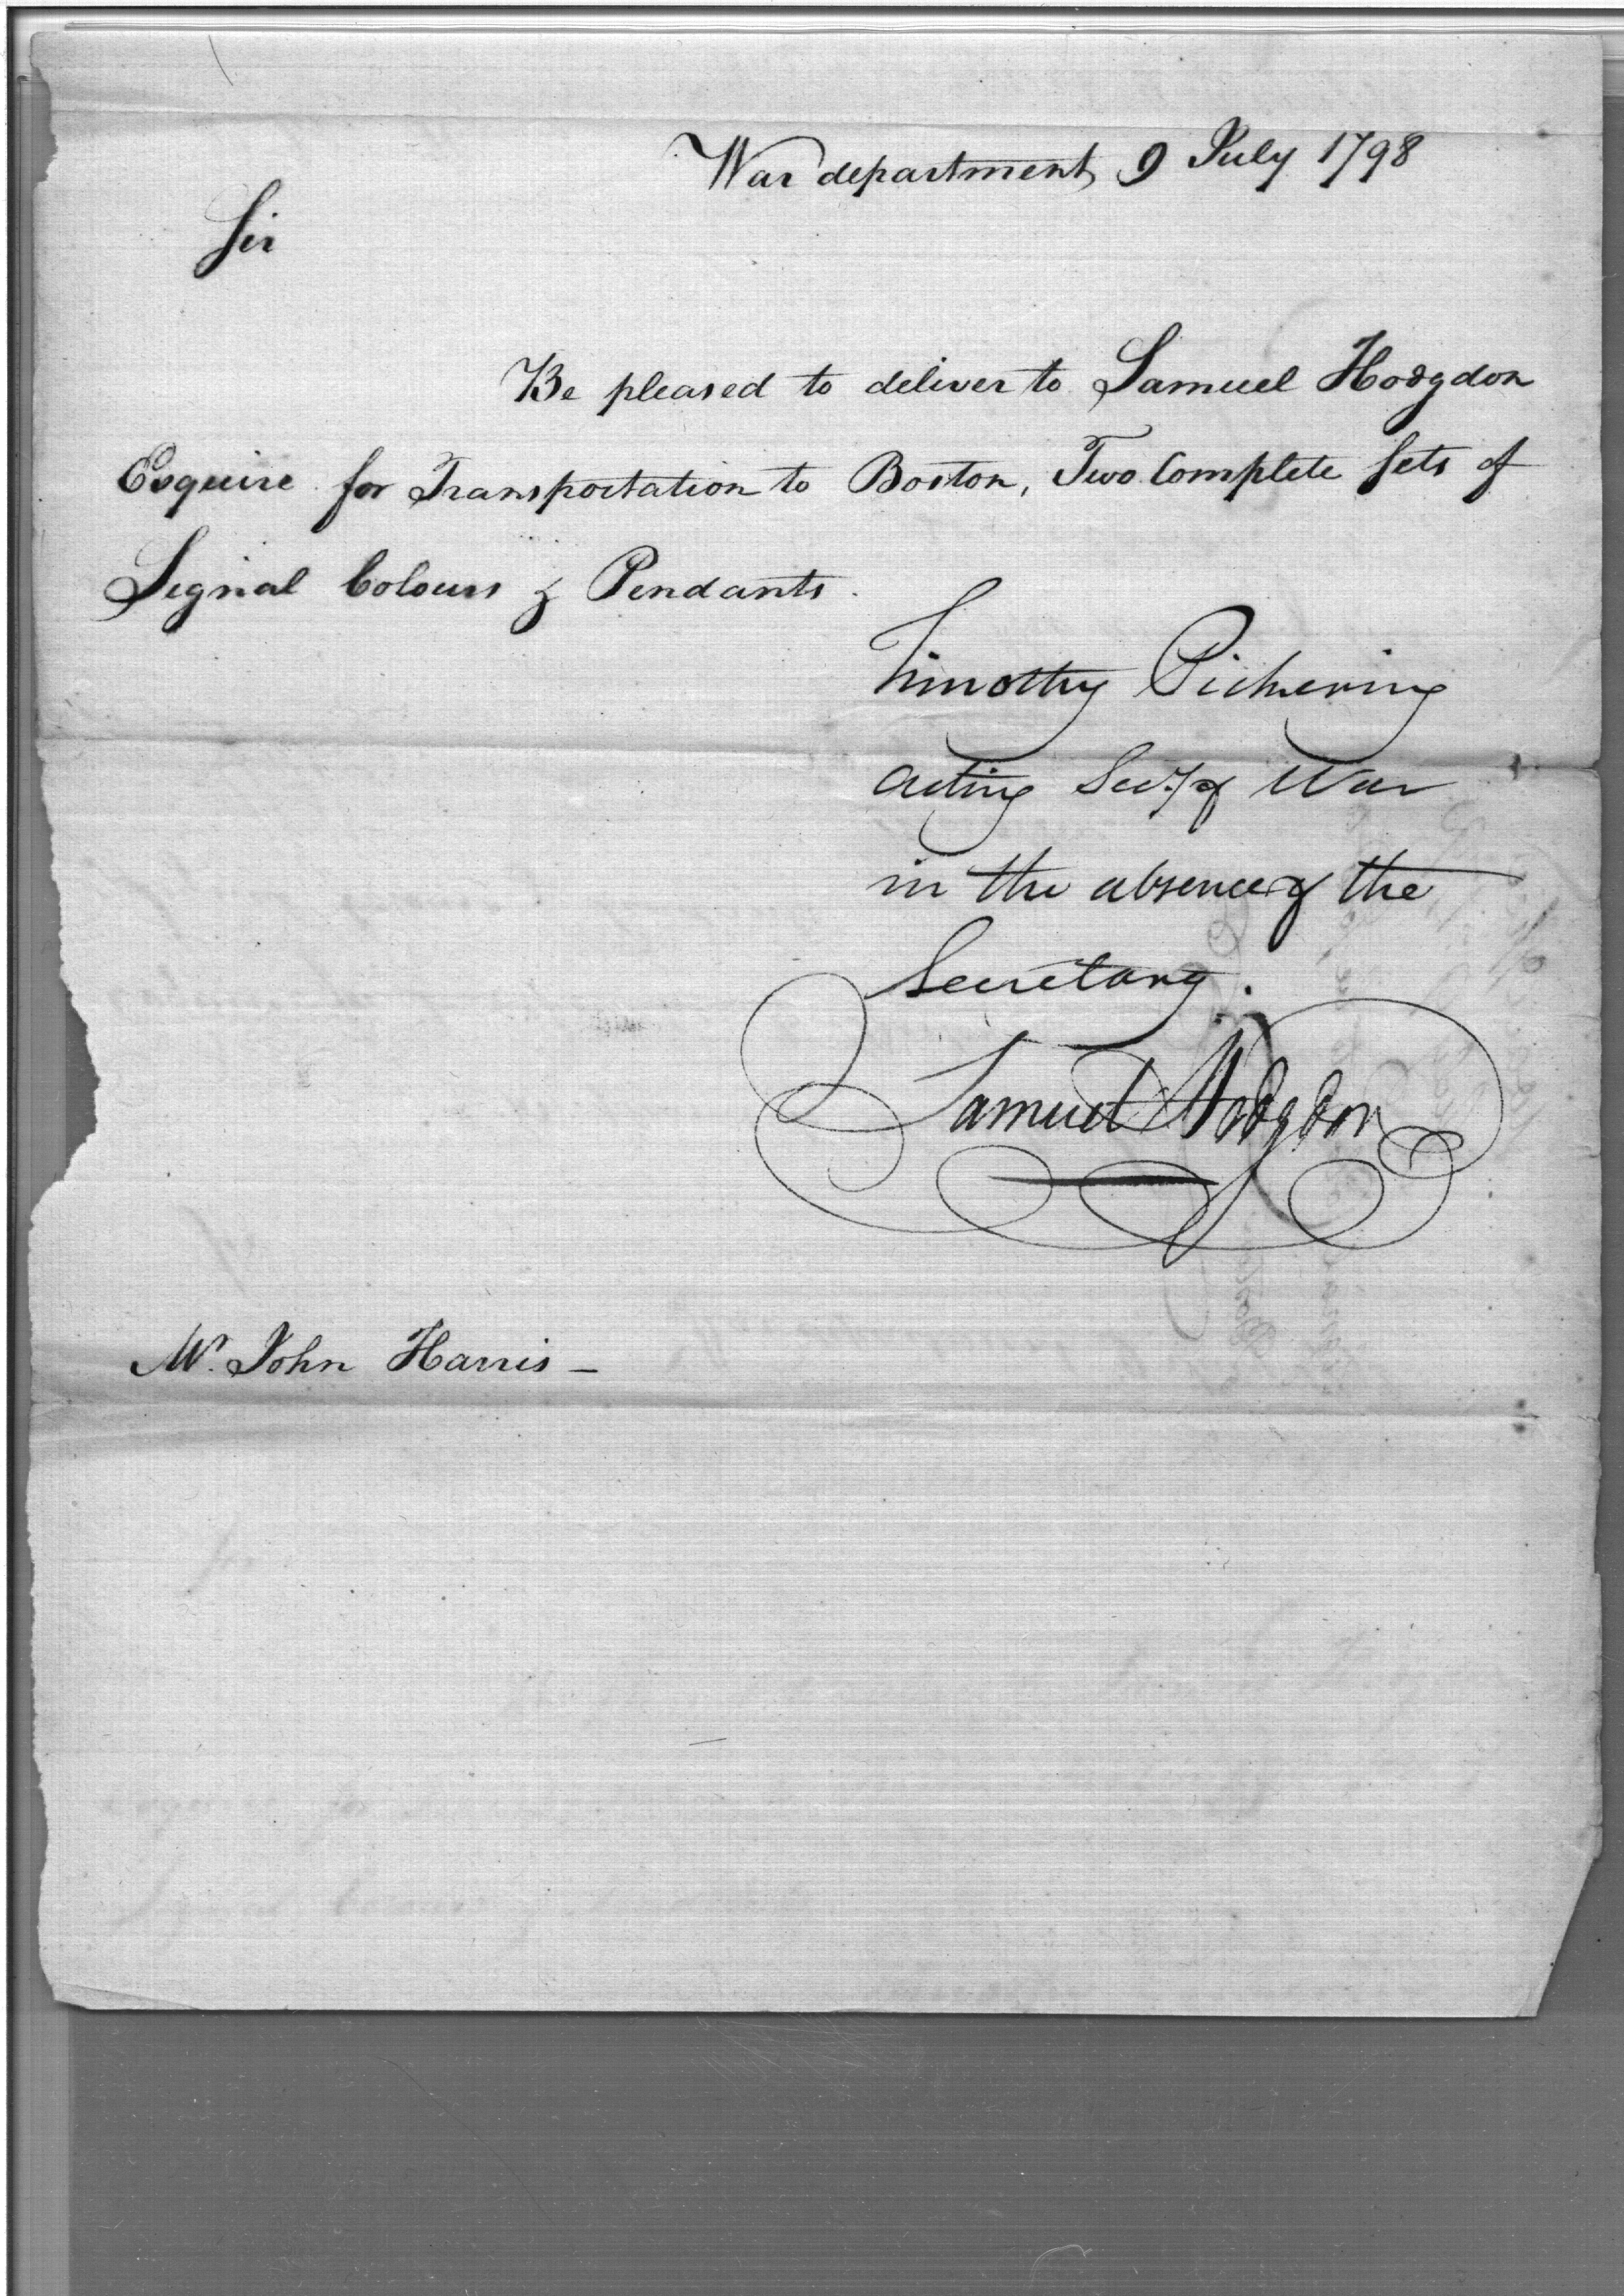 War department 9 July 1798
Sir
Be pleased to deliver to Samuel Hodgdon
Esquire for Transportation to Boston, Two Complete Sets of
Signal Colours & Pendants.
Timothy Pickering
acting Secy of War
in the absence of the
Secretary.
Samuel Hodgdon
Mr. John Harris —